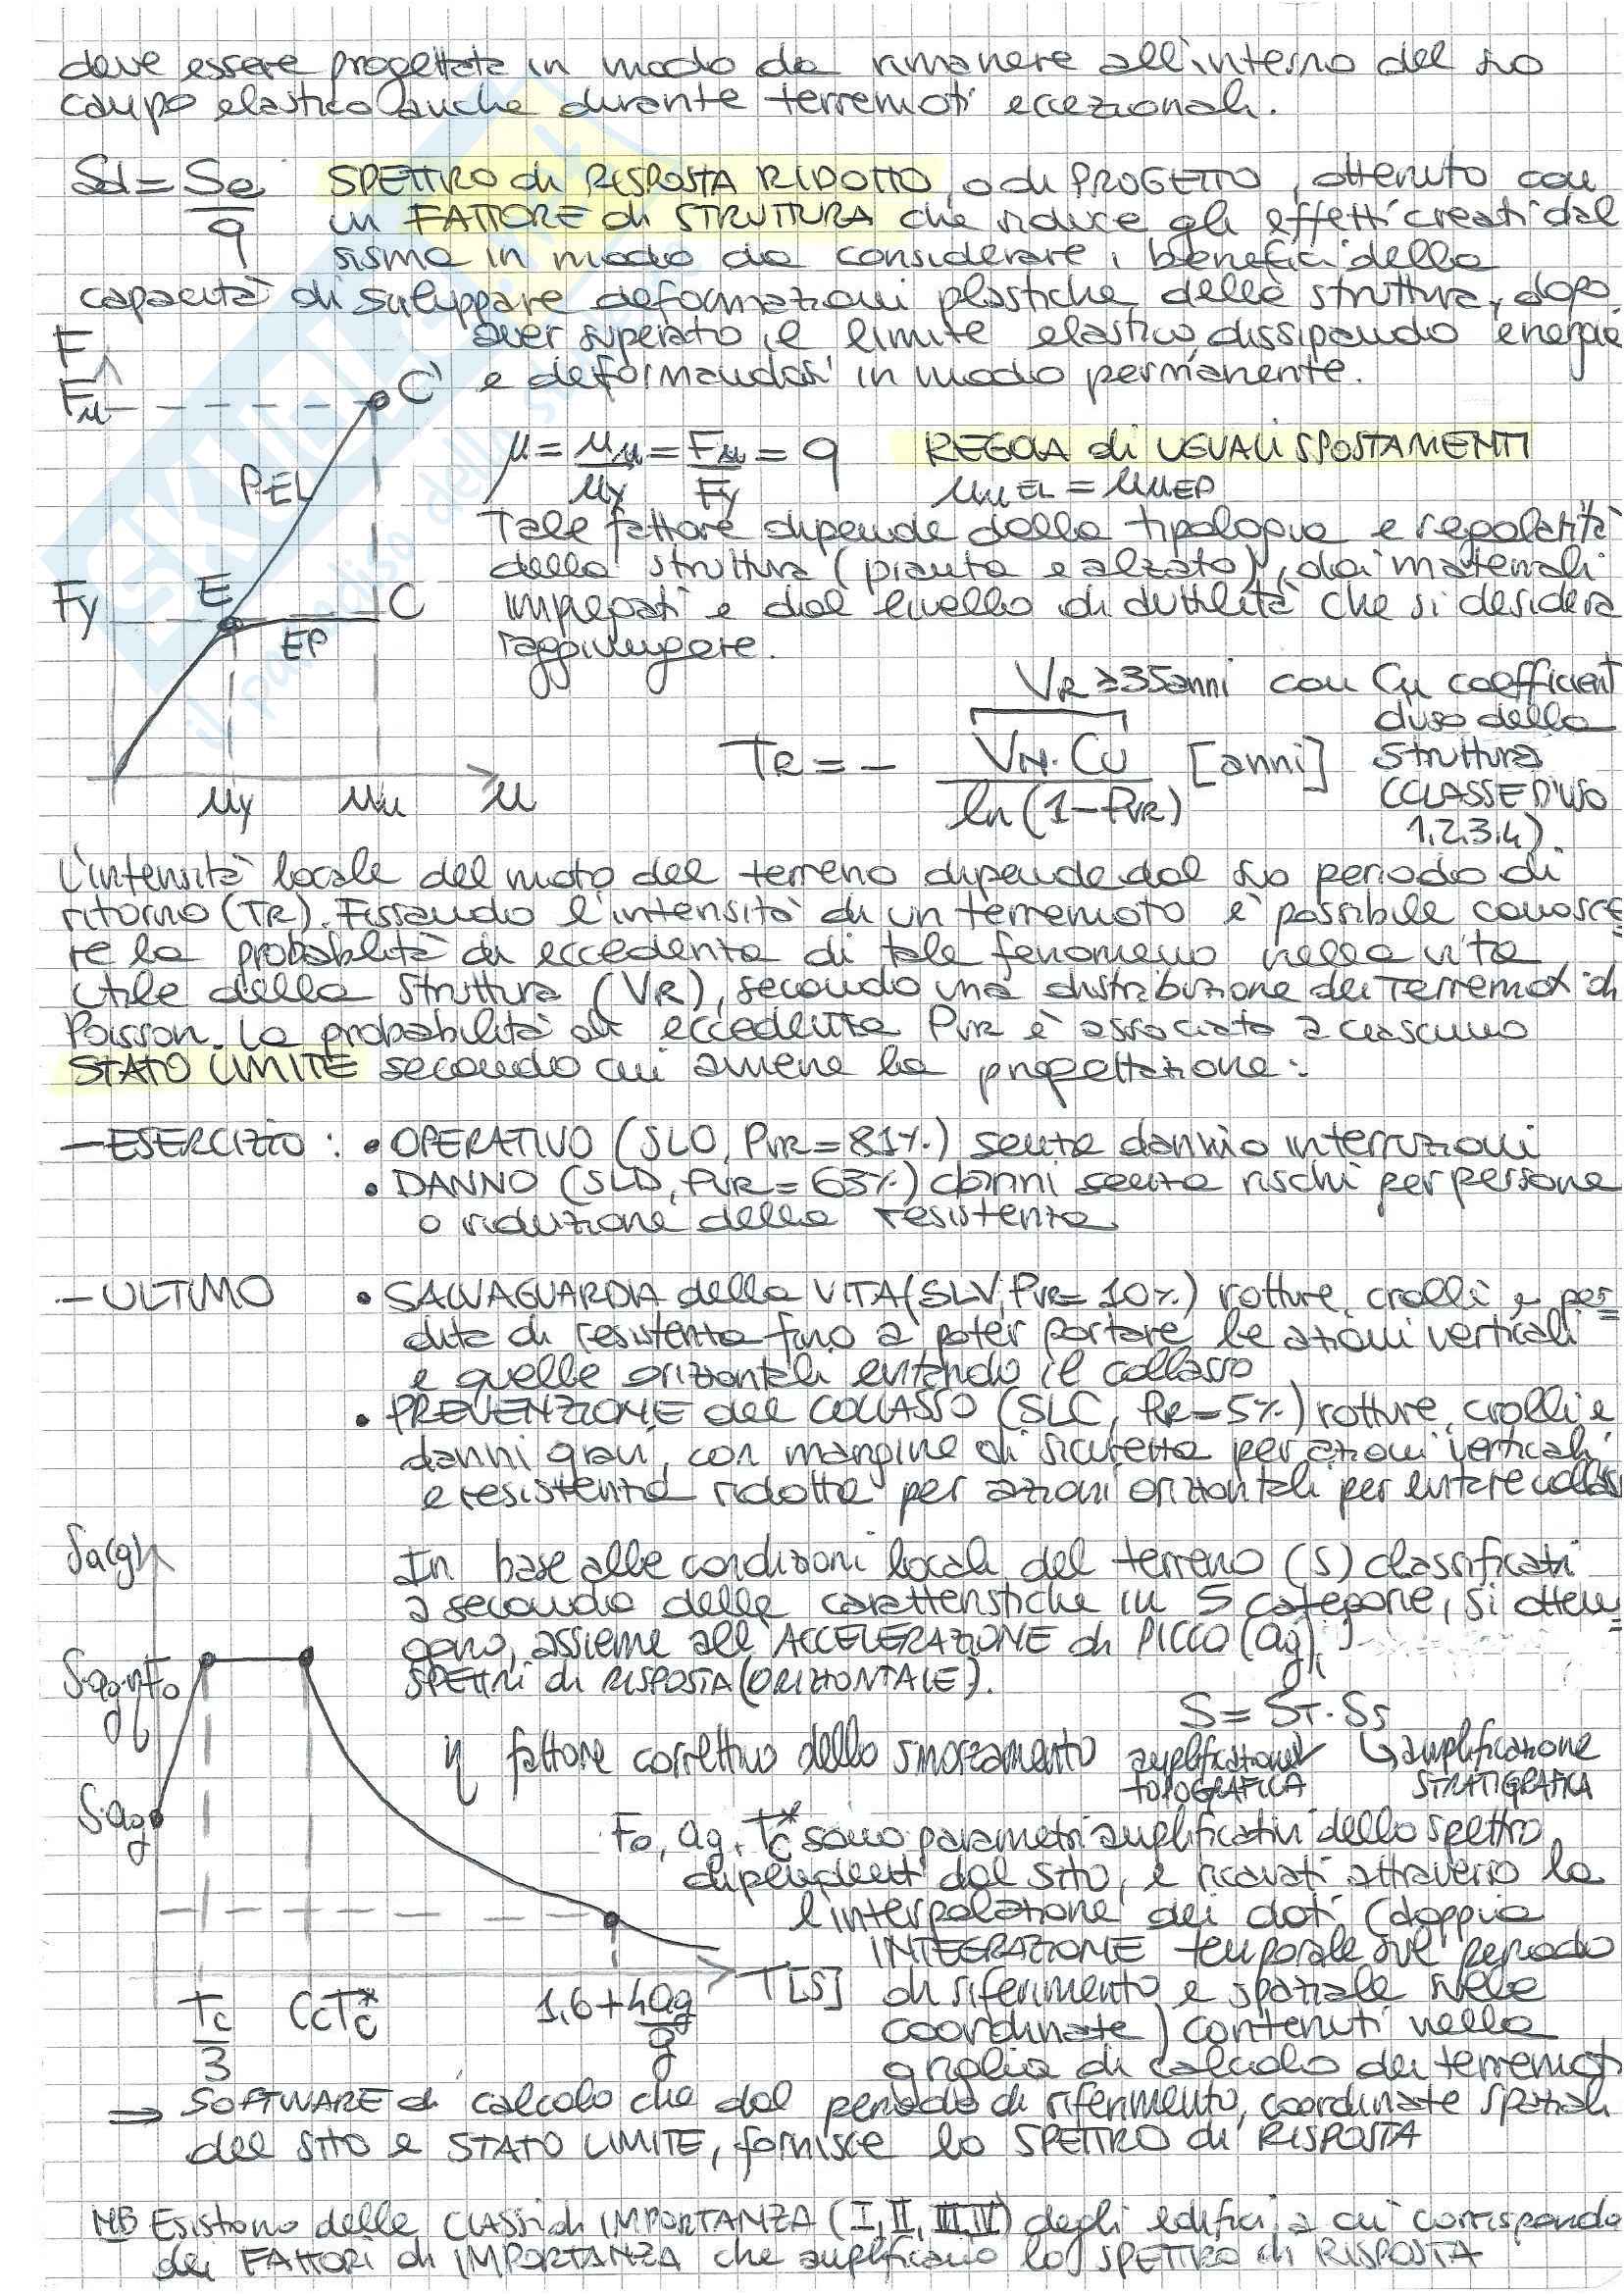 deve essere progettata in modo da rimanere all'interno del suo
campo elastico anche durante terremoti eccezionali.
Sd = Se/q SPETTRO di RISPOSTA RIDOTTO, o di PROGETTO, ottenuto con
un FATTORE di STRUTTURA che riduce gli effetti creati dal
sisma in modo da considerare i benefici della
capacità di sviluppare deformazioni plastiche della struttura, dopo
aver superato il limite elastico, dissipando energia
e deformandosi in modo permanente.
F
Fu
C'
P.EL
Fy
E
C
EP
uy uu u
μ = uu/uy = Fu/Fy = q REGOLA di UGUALI SPOSTAMENTI
uu EL = uu EP
Tale fattore dipende dalla tipologia e regolarità
della struttura (pianta e alzato), dai materiali
impiegati e dal livello di duttilità che si desidera
raggiungere.
VR ≥ 35 anni con Cu coefficient
d'uso della
struttura
(CLASSE D'USO
1,2,3,4).
TR = - VN · CU / ln(1-PVR) [anni]
L'intensità locale del moto del terreno dipende dal suo periodo di
ritorno (TR). Fissando l'intensità di un terremoto è possibile conosce
re la probabilità di eccedenza di tale fenomeno nella vita
utile della struttura (VR), secondo una distribuzione dei terremoti di
Poisson. La probabilità di eccedenza PVR è associata a ciascuno
STATO LIMITE secondo cui avviene la progettazione:
- ESERCIZIO: • OPERATIVO (SLO, PVR = 81%) senza danni o interruzioni
• DANNO (SLD, PVR = 63%) danni senza rischi per persone
o riduzione della resistenza
- ULTIMO • SALVAGUARDIA della VITA (SLV, PVR = 10%) rotture, crolli e per=
dita di resistenza fino a poter portare le azioni verticali
e quelle orizzontali evitando il collasso
• PREVENZIONE del COLLASSO (SLC, PVR = 5%) rotture, crolli e
danni gravi, con margine di sicurezza per azioni verticali
e resistenza ridotta per azioni orizzontali per evitare collass
Sa(g)
S·ag·η·Fo
S·ag
Tc/3 CcTc* 1,6+4ag/g T[s]
In base alle condizioni locali del terreno (S) classificati
a seconda delle caratteristiche in 5 categorie, si otten=
gono, assieme all'ACCELERAZIONE di PICCO (ag), i
SPETTRI di RISPOSTA (ORIZZONTALE).
S = ST · SS
η fattore correttivo dello smorzamento amplificazione TOPOGRAFICA ↳ amplificazione STRATIGRAFICA
Fo, ag, Tc* sono parametri amplificativi dello spettro
dipendenti dal sito, e ricavati attraverso la
l'interpolazione dei dati (doppia
INTEGRAZIONE temporale sul periodo
di riferimento e spaziale nelle
coordinate) contenuti nella
griglia di calcolo dei terremoti
⇒ SOFTWARE di calcolo che dal periodo di riferimento, coordinate spaziali
del sito e STATO LIMITE, fornisce lo SPETTRO di RISPOSTA
NB Esistono delle CLASSI di IMPORTANZA (I, II, III, IV) degli edifici, a cui corrispondo
dei FATTORI di IMPORTANZA che amplificano lo SPETTRO di RISPOSTA